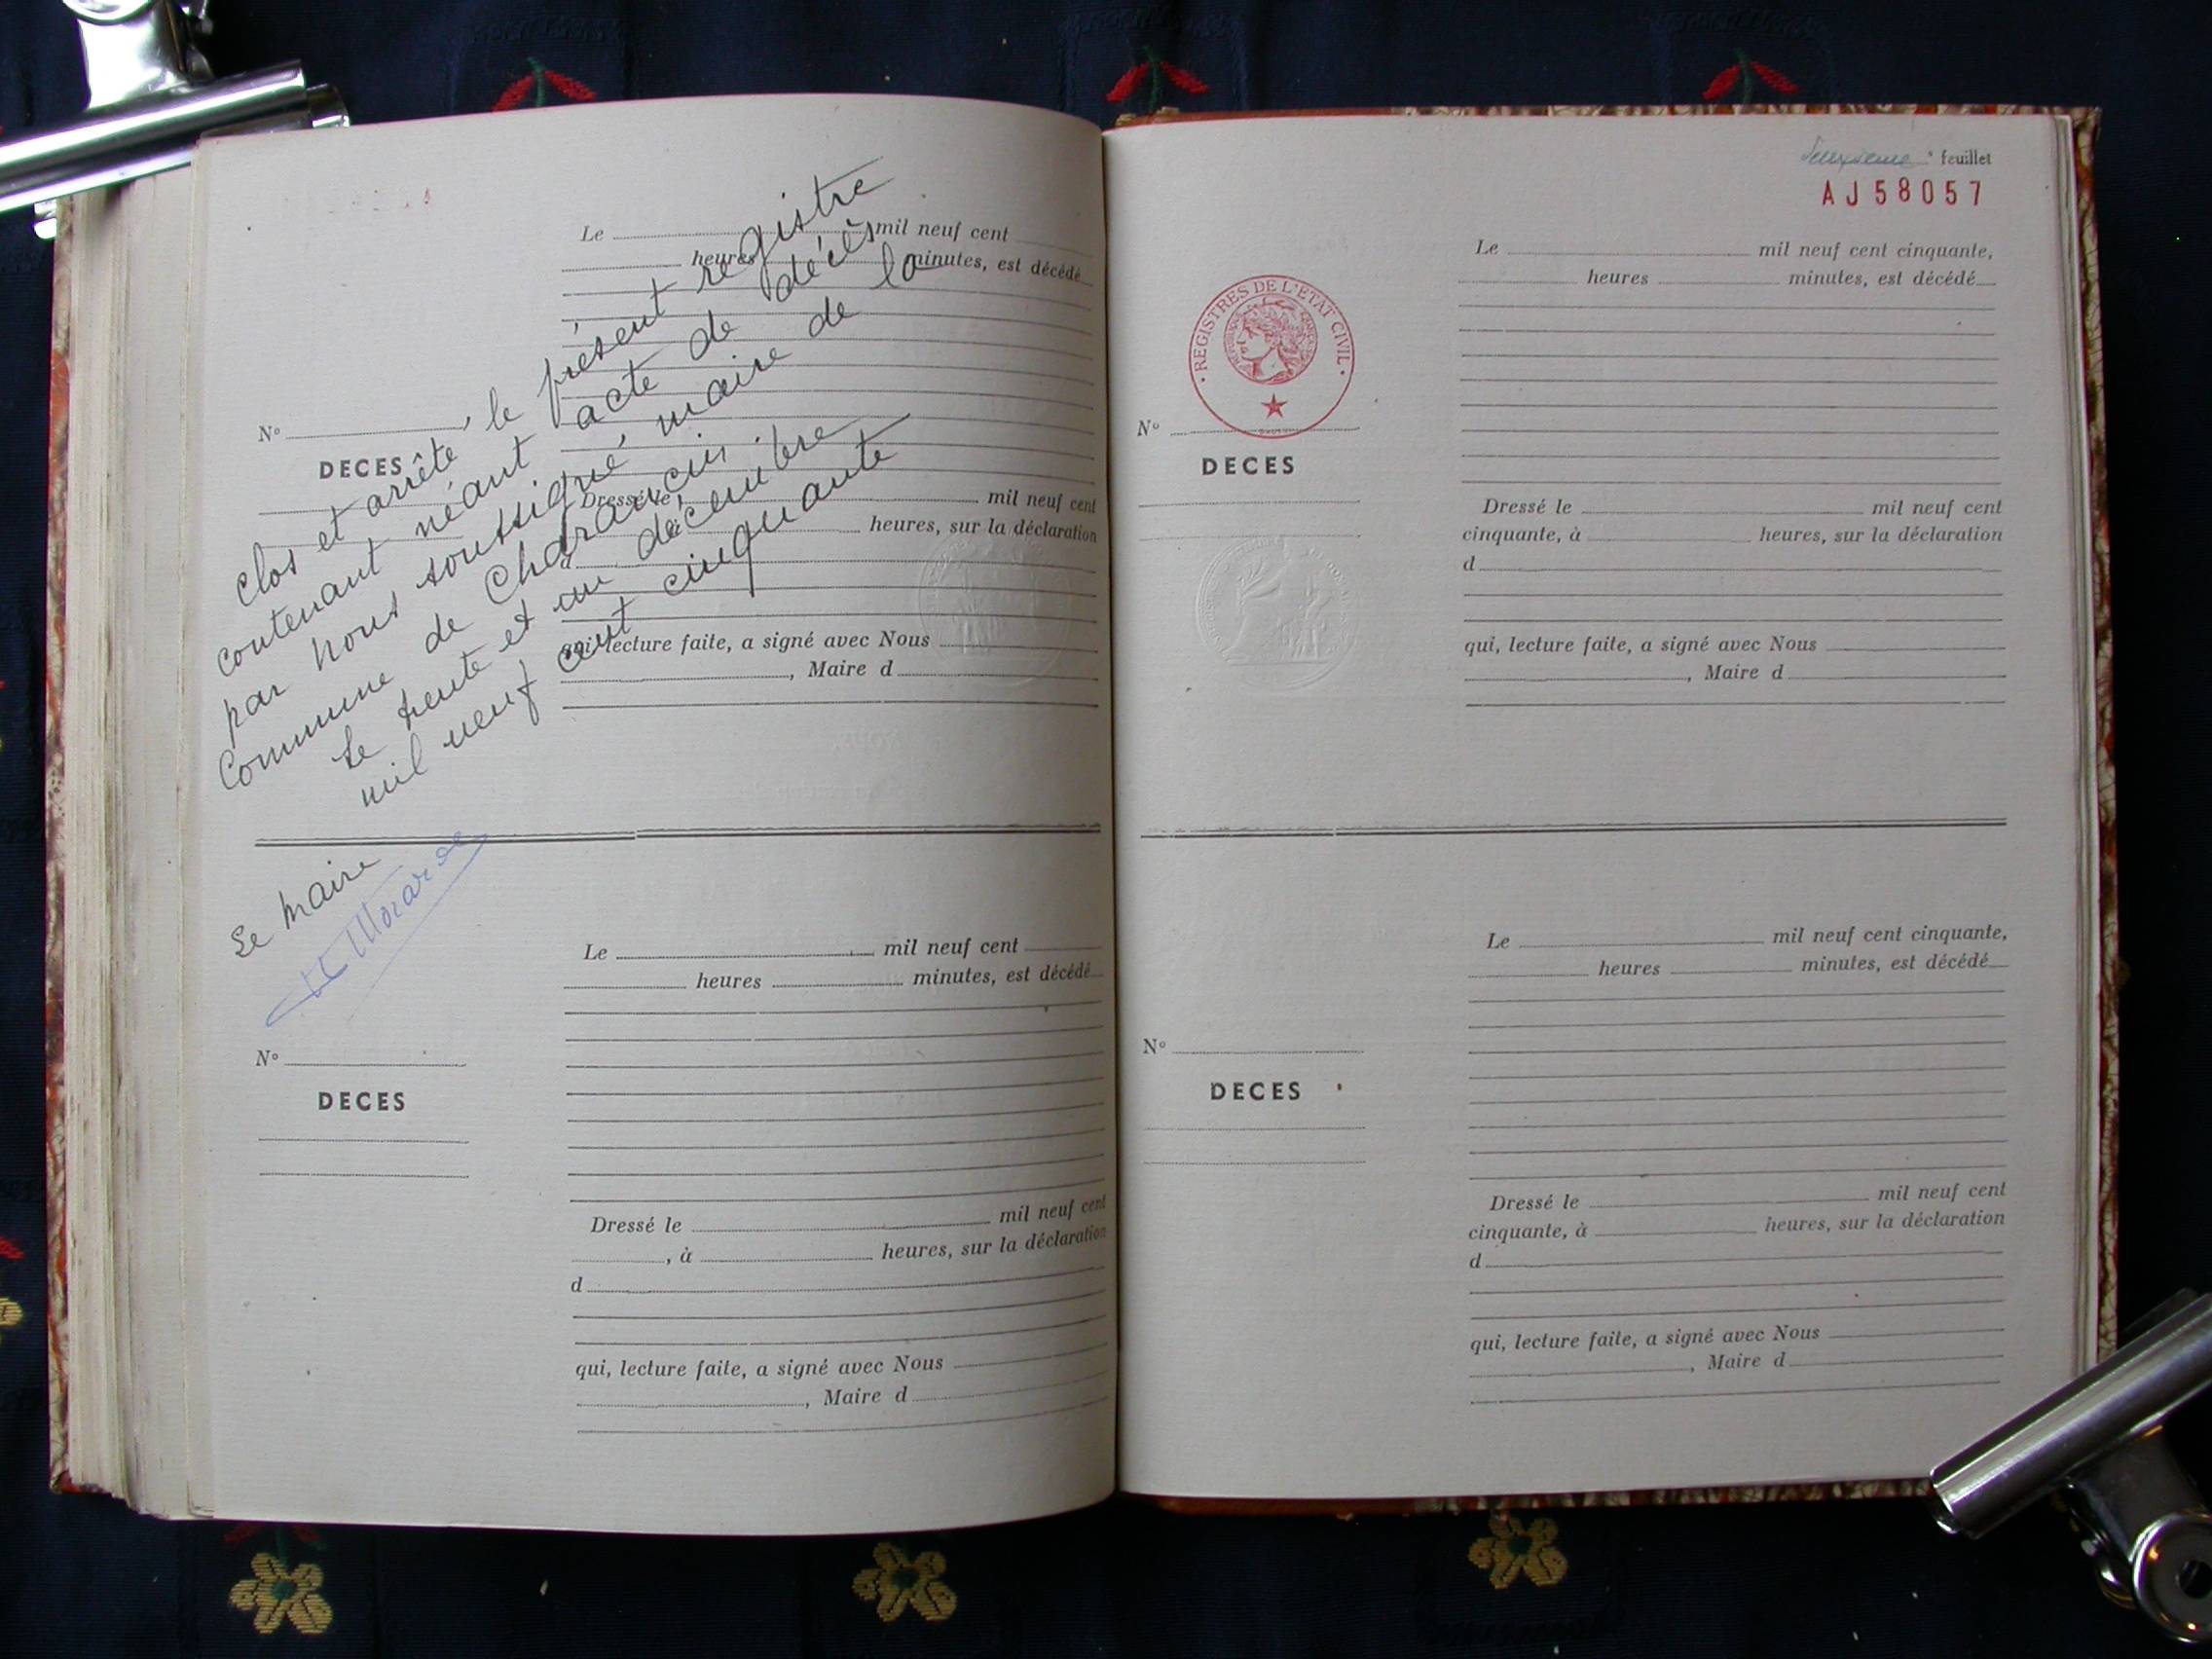 Le mil neuf cent
heures minutes, est décédé
clos et arrêté le présent registre
contenant néant acte de décès
par nous soussigné maire de la
commune de Charancin
Le trente et un décembre
mil neuf cent cinquante
N°
DECES
Dressé le mil neuf cent
heures, sur la déclaration
qui, lecture faite, a signé avec Nous
, Maire d
Le Maire
Le mil neuf cent
heures minutes, est décédé
N°
DECES
Dressé le mil neuf cent
, à heures, sur la déclaration
d
qui, lecture faite, a signé avec Nous
, Maire d
Deuxième feuillet
AJ58057
Le mil neuf cent cinquante,
heures minutes, est décédé
• REGISTRES DE L'ETAT CIVIL •
N°
DECES
Dressé le mil neuf cent
cinquante, à heures, sur la déclaration
d
qui, lecture faite, a signé avec Nous
, Maire d
Le mil neuf cent cinquante,
heures minutes, est décédé
N°
DECES
Dressé le mil neuf cent
cinquante, à heures, sur la déclaration
d
qui, lecture faite, a signé avec Nous
, Maire d